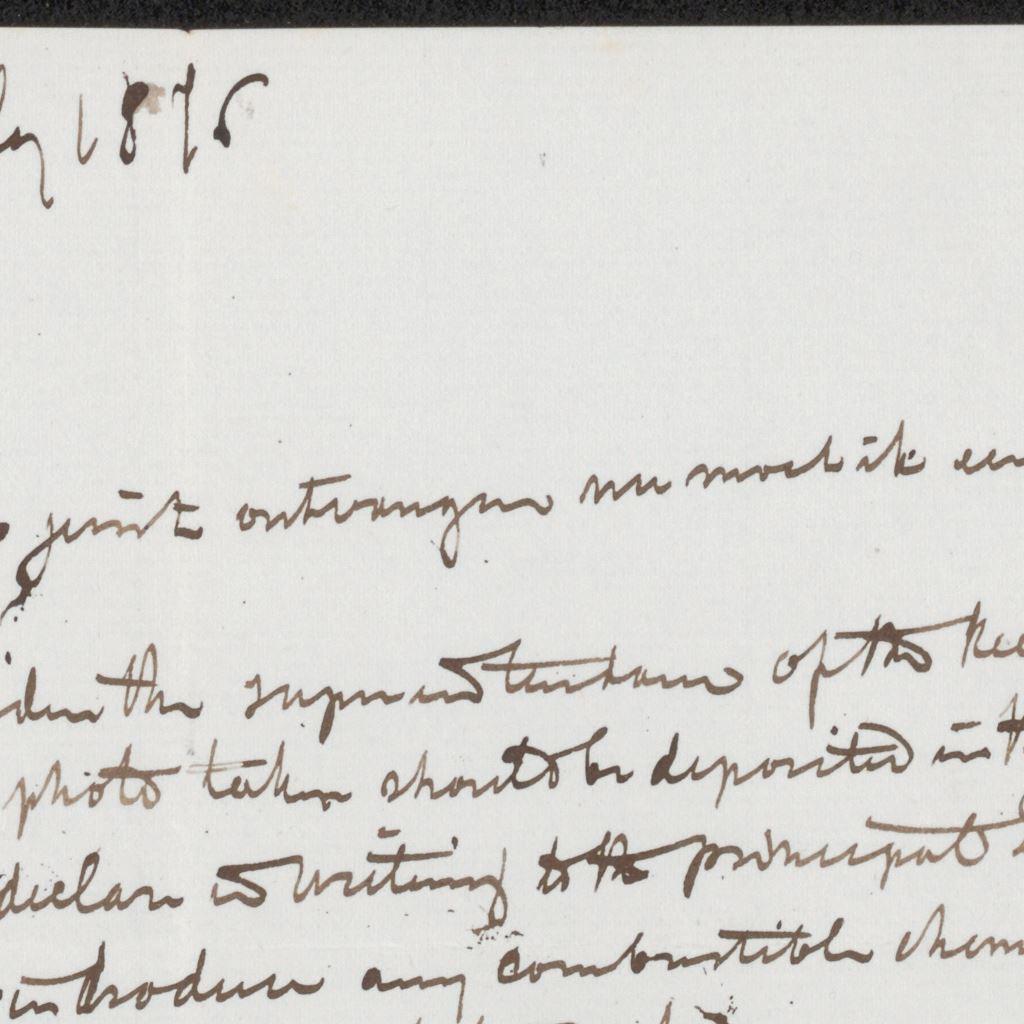 1876
juist ontvangen nu moet ik een
the superintendance of the
photo taken should be deposited in
declare in writing to the principal
introduce any combustible